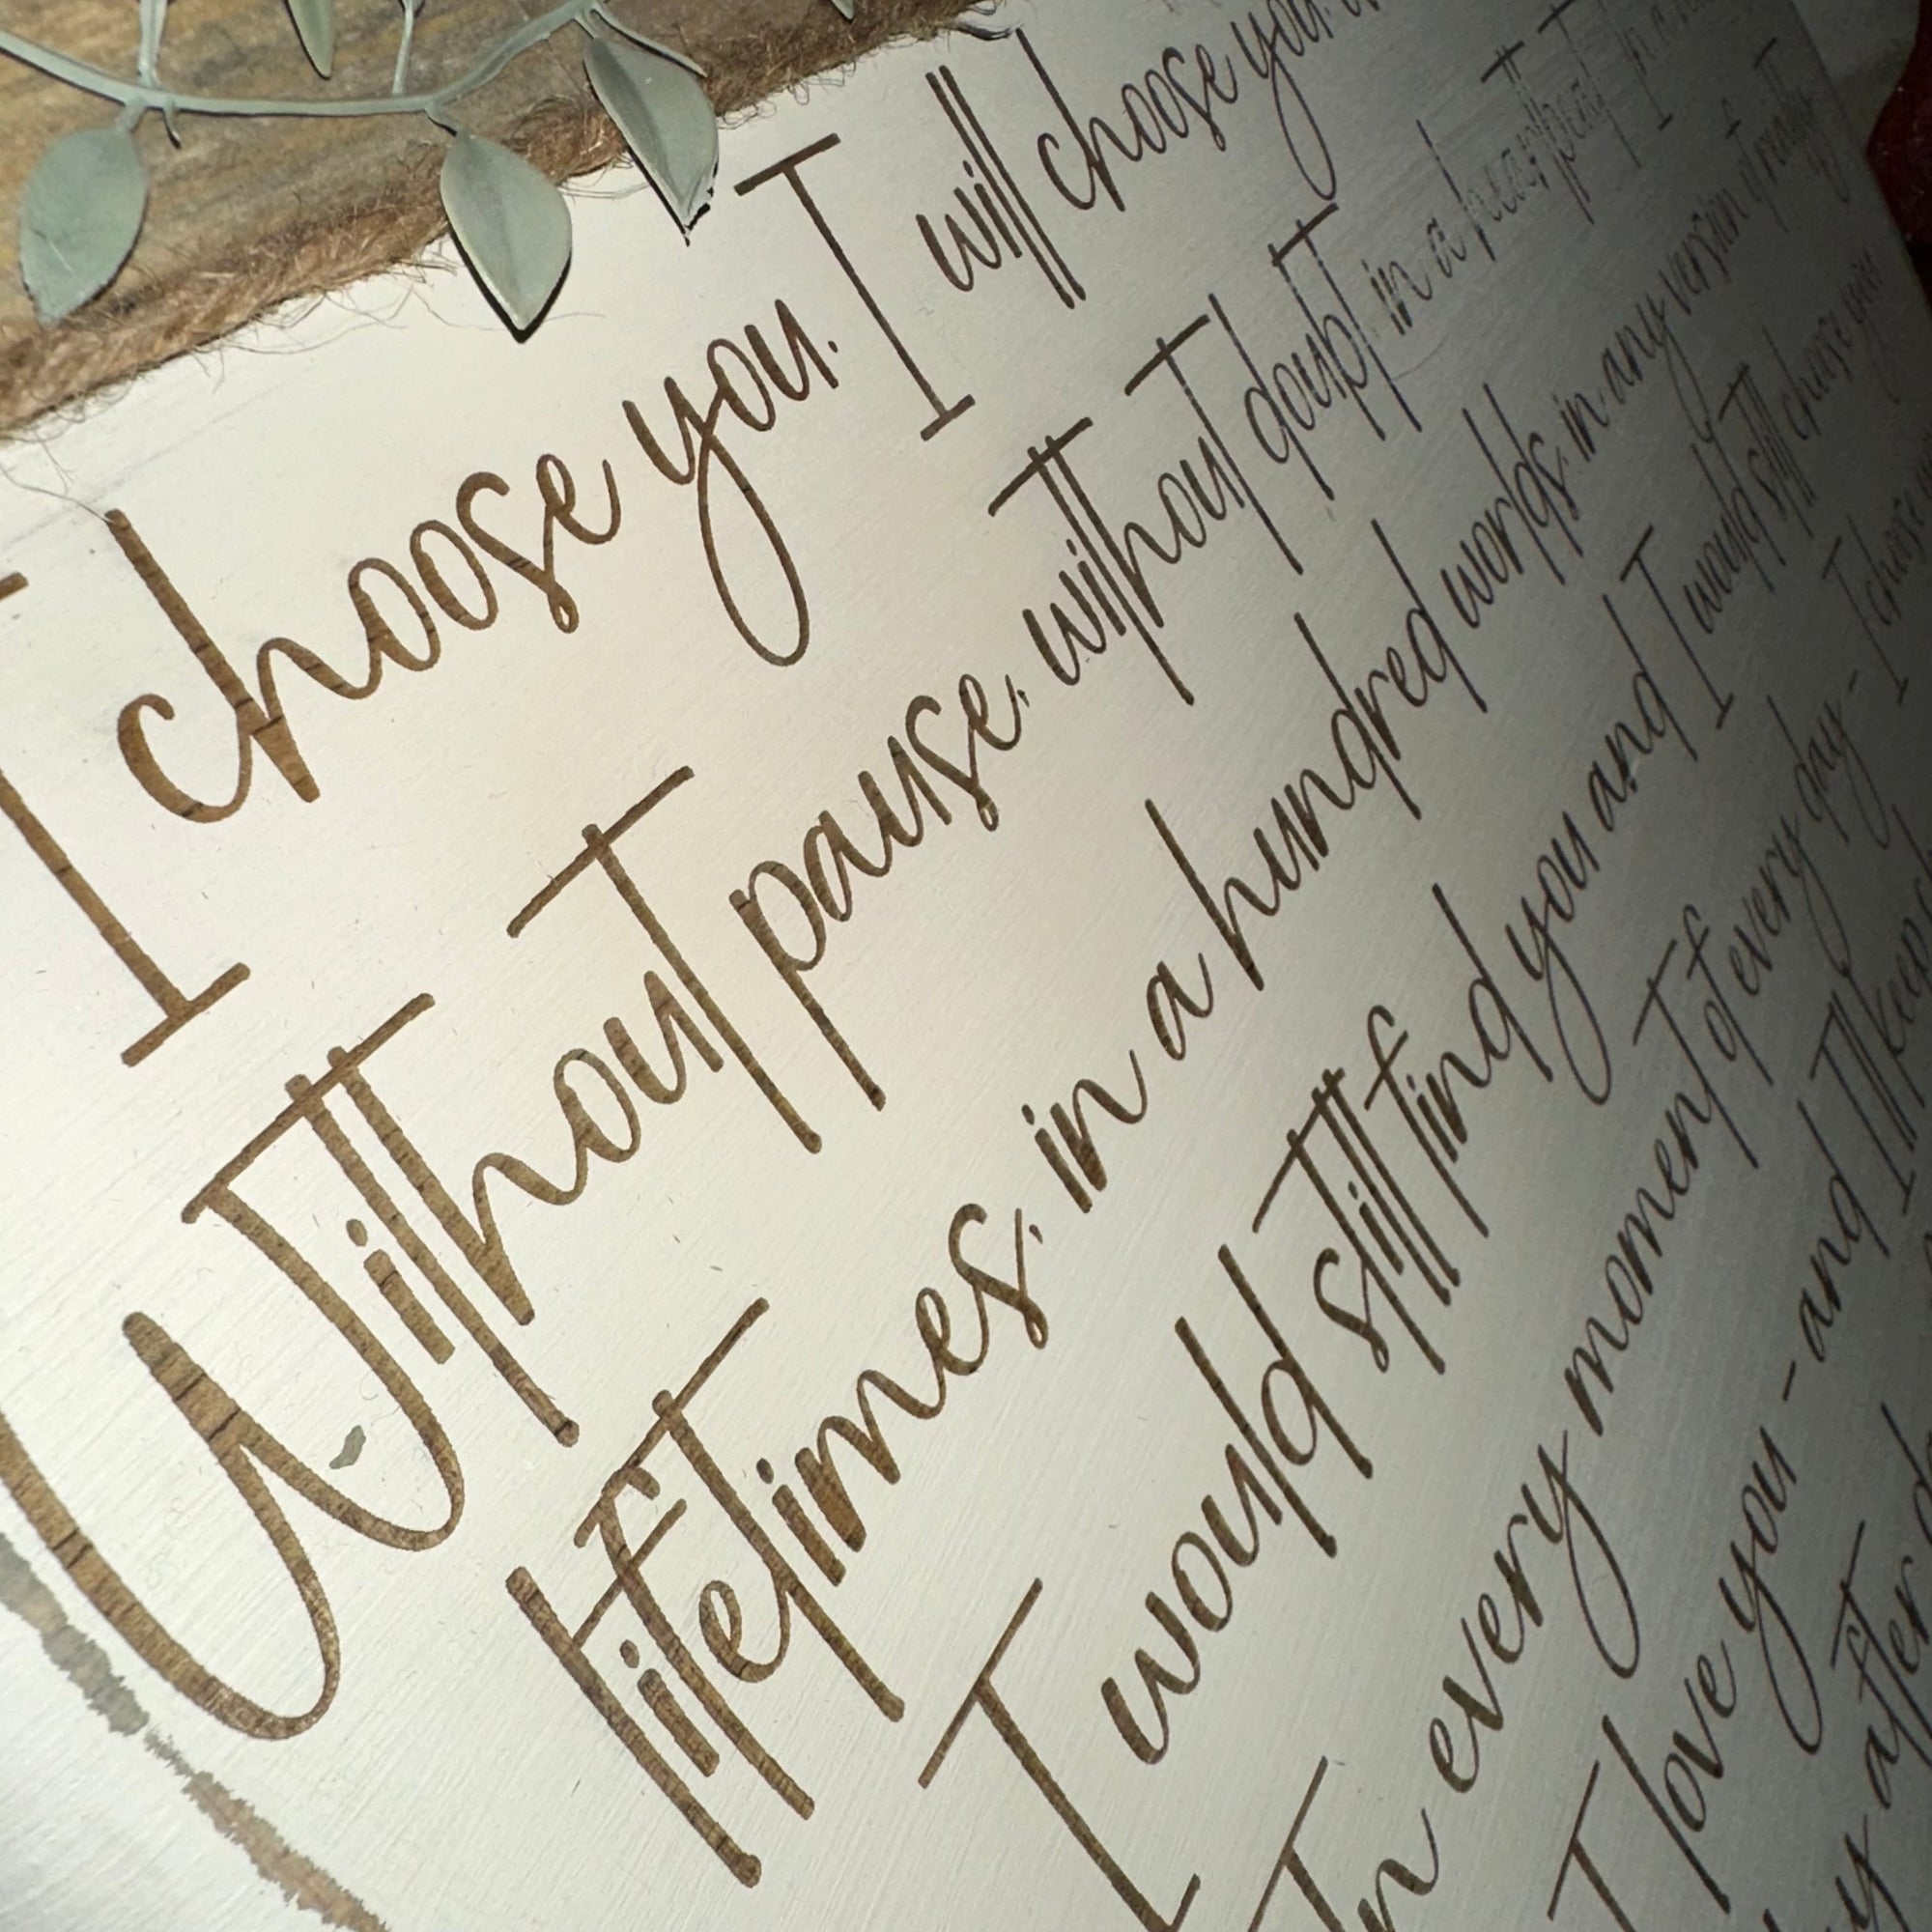 I choose you. I will choose you.
Without pause, without doubt, in a heartbeat. In a
lifetimes, in a hundred worlds, in any version of reality
I would still find you and I would still choose you
In every moment of every day - I choose
I love you - and I'll keep
after